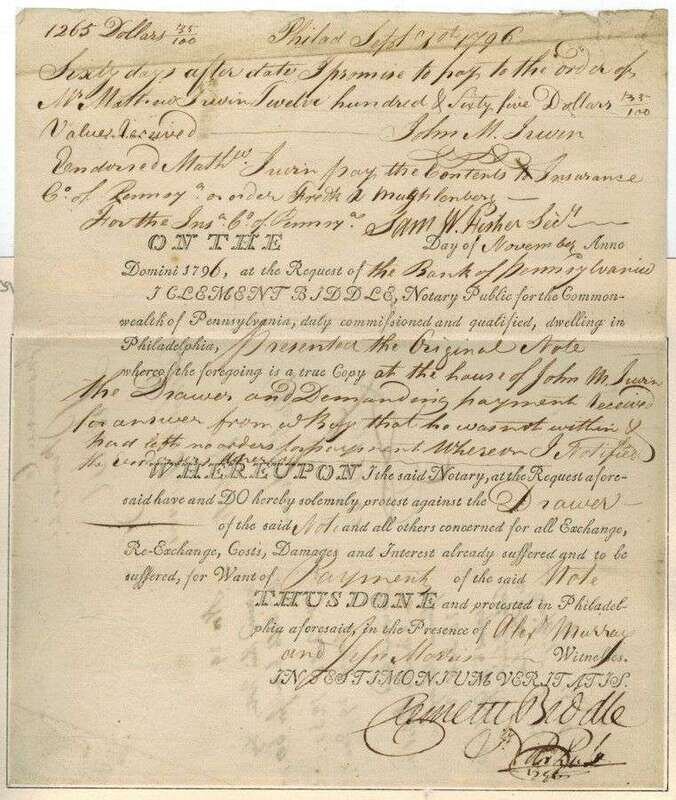 1265 Dollars 35/100 Philad Sept 1796
Sixty days after date I promise to pay to the order of
Mr Mathew Irwin Twelve hundred & Sixty five Dollars 35/100
Value Received — John M. Irwin
Endorsed Mathew Irwin pay the Contents to Insurance
Co. of Pennsya or order Fredk A Mughlenberg
For the Insa Co. of Pennsya Sam W. Fisher Secy
ON THE Day of November Anno
Domini 1796, at the Request of the Bank of Pennsylvania
I CLEMENT BIDDLE, Notary Public for the Common-
wealth of Pennsylvania, duly commissioned and qualified, dwelling in
Philadelphia, presented the Original Note
whereof the foregoing is a true Copy at the house of John M. Irwin
the Drawer and Demanding payment Received
for answer from a Boy that he was not within &
had left no orders for payment Whereon I Notified
the
WHEREUPON I the said Notary, at the Request afore-
said have and DO hereby solemnly protest against the Drawer
of the said Note and all others concerned for all Exchange,
Re-Exchange, Costs, Damages and Interest already suffered and to be
suffered, for Want of Payment of the said Note
THUS DONE and protested in Philadel-
phia aforesaid, in the Presence of Alex Murray
and Morris Witnesses.
IN TESTIMONIUM VERITATIS.
Clement Biddle
1796